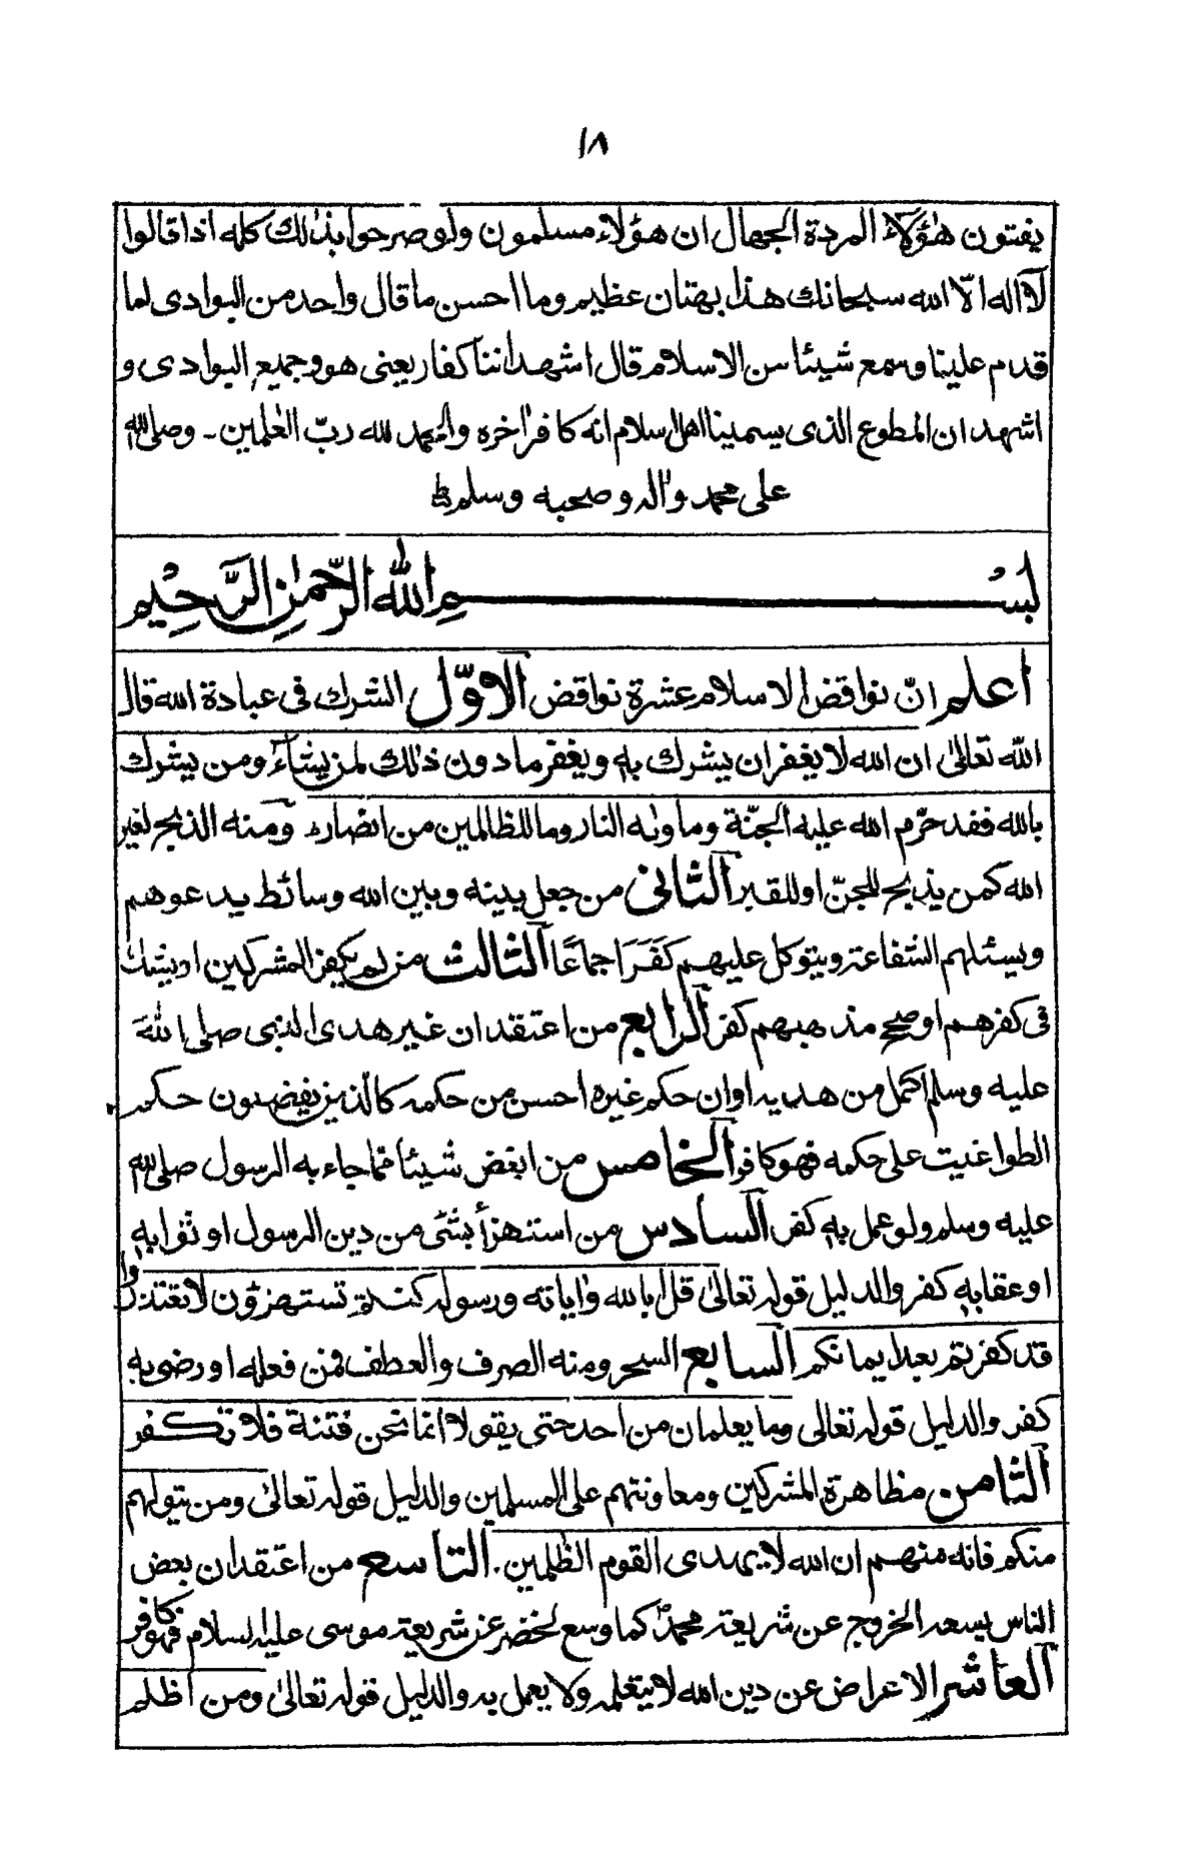 ١٨
يفتون هٰؤلاء المردة الجهال ان هؤلاء مسلمون ولو صرحوا بذٰلك كله اذا قالوا
لا اله الّا الله سبحانك هذا بهتان عظيم وما احسن ما قال واحد من البوادى لما
قدم علينا وسمع شيئا من الاسلام قال اشهد اننا كفار يعنى هو وجميع البوادى و
اشهد ان المطوع الذى يسمينا اهل اسلام انه كافر اخره والحمد لله ربّ العٰلمين ـ وصلى الله
على محمد واٰله وصحبه وسلم
بسْــــــــــمِ الله الرّحمٰنِ الرَّحِيْم
اعلم انّ نواقض الاسلام عشرة نواقض الاوّل الشرك فى عبادة الله قال
الله تعالىٰ ان الله لا يغفر ان يشرك به ويغفر ما دون ذٰلك لمن يشاء ومن يشرك
بالله فقد حرّم الله عليه الجنّة وماوٰىه النار وما للظالمين من انصار ومنه الذبح لغير
الله كمن يذبح للجنّ او للقبر الثانى من جعل بينه وبين الله وسائط يدعوهم
ويسئلهم الشفاعة ويتوكل عليهم كَفَرَ اجماعًا الثالث من لم يكفر المشركين او يشك
فى كفرهم او صحح مذهبهم كفر الرابع من اعتقد ان غير هدى النبى صلى الله
عليه وسلم اكمل من هديه او ان حكم غيره احسن من حكمه كالذين يفضلون حكم
الطواغيت على حكمه فهو كافر الخامس من ابغض شيئا مما جاء به الرسول صلى الله
عليه وسلم ولو عمل به كفر السادس من استهزأ بشئ من دين الرسول او ثوابه
او عقابه كفر والدليل قوله تعالىٰ قل ابالله واٰياته ورسوله كنتم تستهزؤن لا تعتذروا
قد كفرتم بعد ايمانكم السابع السحر ومنه الصرف والعطف فمن فعله او رضى به
كفر والدليل قوله تعالى وما يعلمان من احد حتى يقولا انما نحن فتنة فلا تكفر
الثامن مظاهرة المشركين ومعاونتهم على المسلمين والدليل قوله تعالىٰ ومن يتولهم
منكم فانه منهم ان الله لا يهدى القوم الظٰلمين. التاسع من اعتقد ان بعض
الناس يسعه الخروج عن شريعة محمدؐ كما وسع لخضر عن شريعة موسى عليه السلام فهو كافر
العاشر الاعراض عن دين الله لا يتعلمه ولا يعمل به والدليل قوله تعالىٰ ومن اظلم